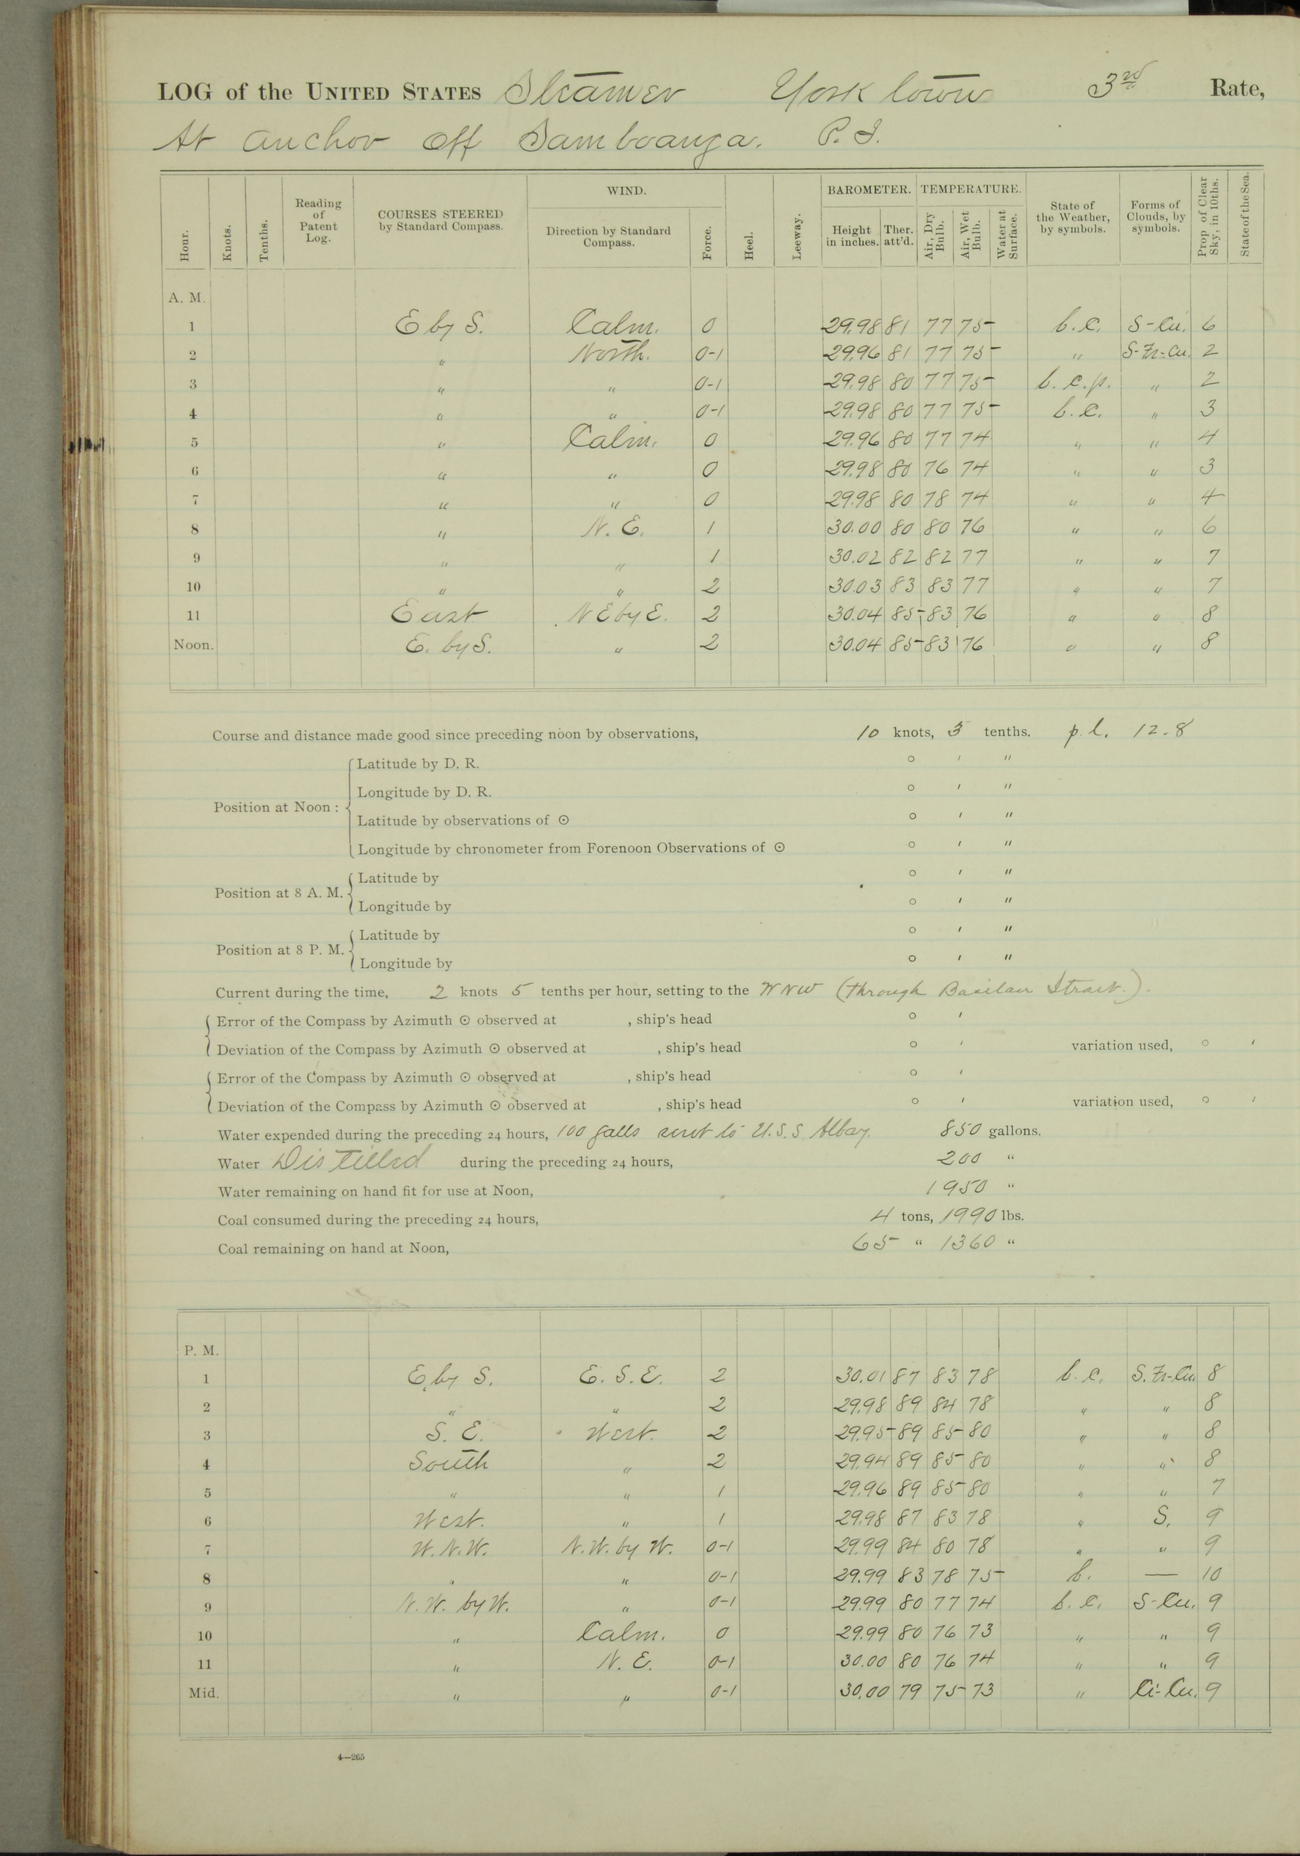 LOG of the UNITED STATES Steamer Yorktown 3rd Rate,
At anchor off Samboanga. P. I.
Hour. Knots. Tenths. Reading of Patent Log. COURSES STEERED by Standard Compass. WIND. Direction by Standard Compass. Force. Heel. Leeway. BAROMETER. Height in inches. Ther. att'd. TEMPERATURE. Air, Dry Bulb. Air, Wet Bulb. Water at Surface. State of the Weather, by symbols. Forms of Clouds, by symbols. Prop of Clear Sky, in 10ths. State of the Sea.
A. M.
1 E by S. Calm. 0 29.98 81 77 75 b.c. S-Cu. 6
2 " North. 0-1 29.96 81 77 75 " S-Fr-Cu. 2
3 " " 0-1 29.98 80 77 75 b.c.p. " 2
4 " " 0-1 29.98 80 77 75 b.c. " 3
5 " Calm. 0 29.96 80 77 74 " " 4
6 " " 0 29.98 80 76 74 " " 3
7 " " 0 29.98 80 78 74 " " 4
8 " N. E. 1 30.00 80 80 76 " " 6
9 " " 1 30.02 82 82 77 " " 7
10 " " 2 30.03 83 83 77 " " 7
11 East NE by E. 2 30.04 85 83 76 " " 8
Noon. E. by S. " 2 30.04 85 83 76 " " 8
Course and distance made good since preceding noon by observations, 10 knots, 5 tenths. p. l. 12.8
Position at Noon: Latitude by D. R. ° ′ ″
Longitude by D. R. ° ′ ″
Latitude by observations of ☉ ° ′ ″
Longitude by chronometer from Forenoon Observations of ☉ ° ′ ″
Position at 8 A. M. Latitude by ° ′ ″
Longitude by ° ′ ″
Position at 8 P. M. Latitude by ° ′ ″
Longitude by ° ′ ″
Current during the time, 2 knots 5 tenths per hour, setting to the WNW (through Basilan Strait.).
Error of the Compass by Azimuth ☉ observed at , ship's head ° ′
Deviation of the Compass by Azimuth ☉ observed at , ship's head ° ′ variation used, ° ′
Error of the Compass by Azimuth ☉ observed at , ship's head ° ′
Deviation of the Compass by Azimuth ☉ observed at , ship's head ° ′ variation used, ° ′
Water expended during the preceding 24 hours, 100 galls sent to U.S.S. Albay. 850 gallons.
Water Distilled during the preceding 24 hours, 200 "
Water remaining on hand fit for use at Noon, 1950 "
Coal consumed during the preceding 24 hours, 4 tons, 1990 lbs.
Coal remaining on hand at Noon, 65 " 1360 "
P. M.
1 E by S. E. S. E. 2 30.01 87 83 78 b.c. S.Fr-Cu. 8
2 " " 2 29.98 89 84 78 " " 8
3 S. E. West. 2 29.95 89 85 80 " " 8
4 South " 2 29.94 89 85 80 " " 8
5 " " 1 29.96 89 85 80 " " 7
6 West. " 1 29.98 87 83 78 " S. 9
7 W.N.W. N.W. by W. 0-1 29.99 84 80 78 " " 9
8 " " 0-1 29.99 83 78 75 b. — 10
9 N.W. by W. " 0-1 29.99 80 77 74 b.c. S-Cu. 9
10 " Calm. 0 29.99 80 76 73 " " 9
11 " N. E. 0-1 30.00 80 76 74 " " 9
Mid. " " 0-1 30.00 79 75 73 " Ci-Cu. 9
4—265